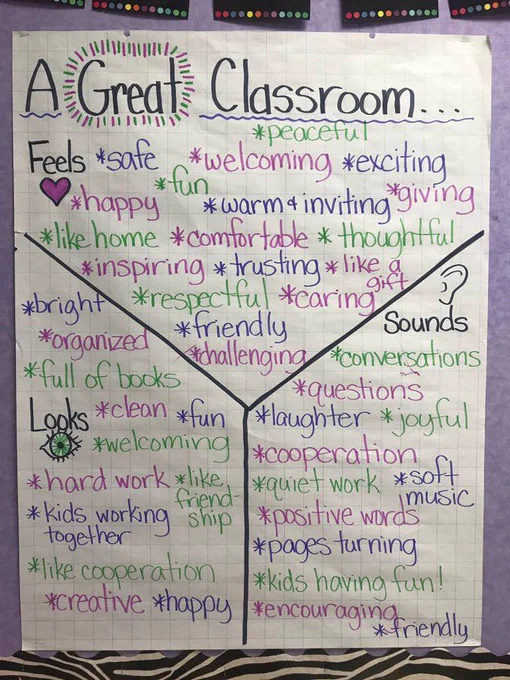 A Great Classroom...
Feels
*peaceful
*safe *welcoming *exciting
*fun
*happy *warm & inviting *giving
*like home *comfortable *thoughtful
*inspiring *trusting *like a gift
*respectful *caring
*friendly
*challenging
Looks
*bright
*organized
*full of books
*clean *fun
*welcoming
*hard work *like friend-
ship
*kids working
together
*like cooperation
*creative *happy
Sounds
*conversations
*questions
*laughter *joyful
*cooperation
*quiet work *soft
music
*positive words
*pages turning
*kids having fun!
*encouraging
*friendly